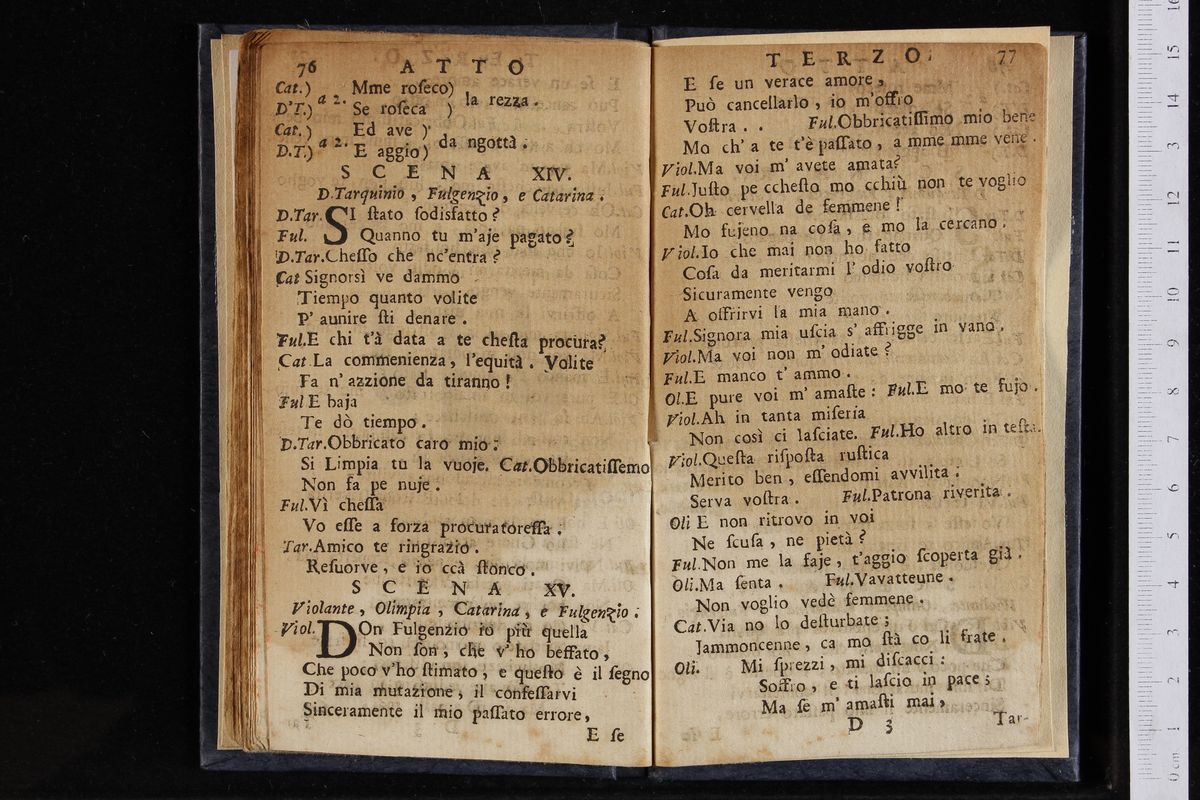 76 ATTO
Cat.) Mme roſeco)
a 2. la rezza.
D'T.) Se roſeca )
Cat. ) Ed ave )
a 2. da ngottà.
D.T.) E aggio)
SCENA XIV.
D.Tarquinio, Fulgenzio, e Catarina.
D.Tar. SI ſtato ſodisfatto?
Ful. Quanno tu m'aje pagato?
D.Tar.Cheſſo che nc'entra?
Cat Signorsì ve dammo
Tiempo quanto volite
P' aunire ſti denare.
Ful.E chi t'à data a te cheſta procura?
Cat.La commenienza, l'equità. Volite
Fa n' azzione da tiranno!
Ful E baja
Te dò tiempo.
D.Tar.Obbricato caro mio:
Si Limpia tu la vuoje. Cat.Obbricatiſſemo
Non fa pe nuje.
Ful.Vì cheſſa
Vo eſſe a forza procuratoreſſa.
Tar.Amico te ringrazio.
Reſuorve, e io ccà ſtonco.
SCENA XV.
Violante, Olimpia, Catarina, e Fulgenzio.
Viol. DOn Fulgenzio io più quella
Non ſon, che v' ho beffato,
Che poco v'ho ſtimato, e queſto è il ſegno
Di mia mutazione, il confeſſarvi
Sinceramente il mio paſſato errore,
E ſe
TERZO. 77
E ſe un verace amore,
Può cancellarlo, io m'offro
Voſtra.. Ful.Obbricatiſſimo mio bene
Mo ch' a te t'è paſſato, a mme mme vene.
Viol.Ma voi m' avete amata?
Ful.Juſto pe ccheſto mo cchiù non te voglio
Cat.Oh cervella de femmene!
Mo fujeno na coſa, e mo la cercano.
Viol.Io che mai non ho fatto
Coſa da meritarmi l' odio voſtro
Sicuramente vengo
A offrirvi la mia mano.
Ful.Signora mia uſcia s' affrigge in vano.
Viol.Ma voi non m' odiate?
Ful.E manco t' ammo.
Ol.E pure voi m' amaſte: Ful.E mo te fujo.
Viol.Ah in tanta miſeria
Non così ci laſciate. Ful.Ho altro in teſta.
Viol.Queſta riſpoſta ruſtica
Merito ben, eſſendomi avvilita;
Serva voſtra. Ful.Patrona riverita.
Oli E non ritrovo in voi
Ne ſcuſa, ne pietà?
Ful.Non me la faje, t'aggio ſcoperta già.
Oli.Ma ſenta. Ful.Vavatteune.
Non voglio vedè femmene.
Cat.Via no lo deſturbate;
Jammoncenne, ca mo ſtà co li frate.
Oli. Mi ſprezzi, mi diſcacci:
Soffro, e ti laſcio in pace;
Ma ſe m' amaſti mai,
D 3 Tar-